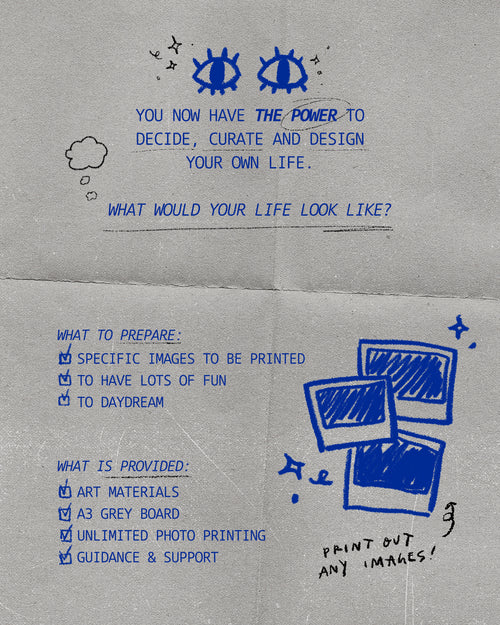 YOU NOW HAVE THE POWER TO
DECIDE, CURATE AND DESIGN
YOUR OWN LIFE.
WHAT WOULD YOUR LIFE LOOK LIKE?
WHAT TO PREPARE:
SPECIFIC IMAGES TO BE PRINTED
TO HAVE LOTS OF FUN
TO DAYDREAM
WHAT IS PROVIDED:
ART MATERIALS
A3 GREY BOARD
UNLIMITED PHOTO PRINTING
GUIDANCE & SUPPORT
PRINT OUT
ANY IMAGES!